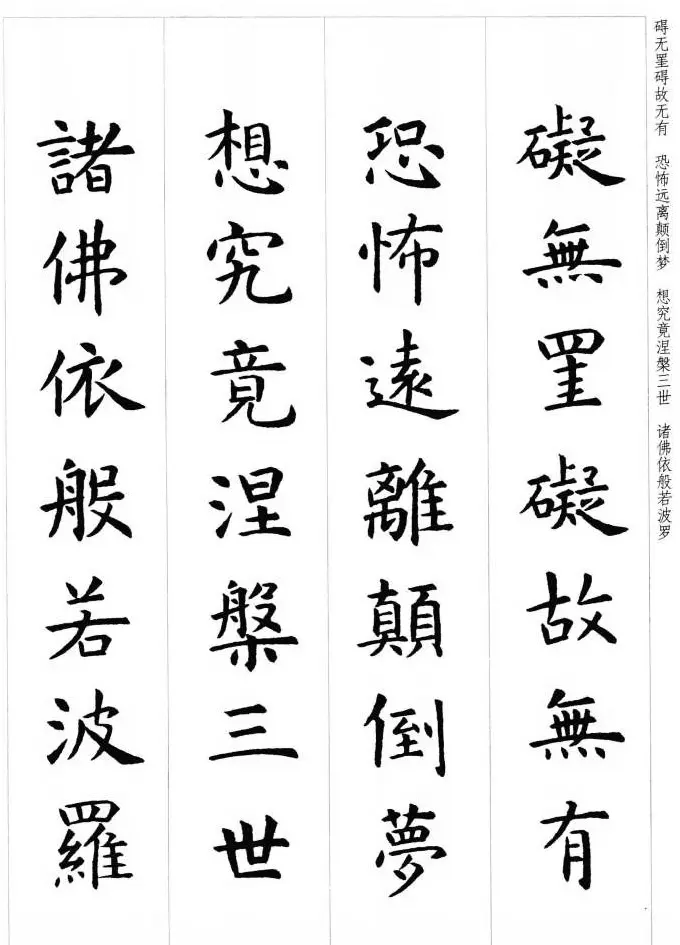 碍无罣碍故无有　恐怖远离颠倒梦　想究竟涅槃三世　诸佛依般若波罗
礙無罣礙故無有
恐怖遠離顛倒夢
想究竟涅槃三世
諸佛依般若波羅